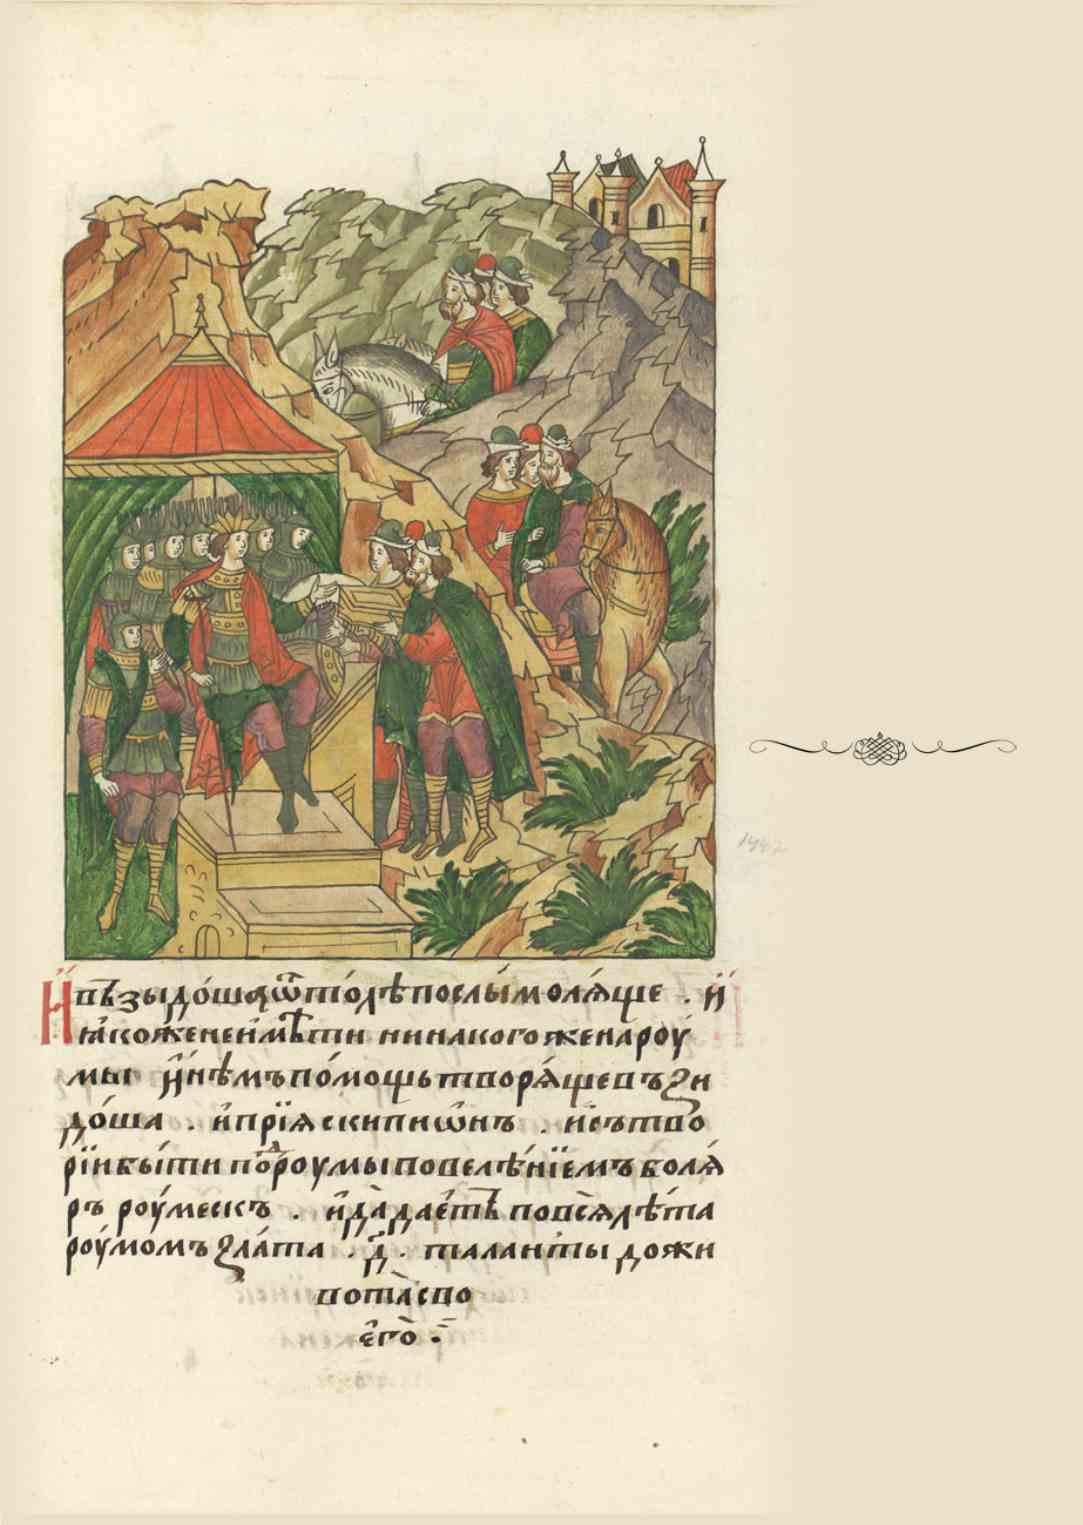 И възыдоша ѿтолѣ послы молѧще . и
ꙗкоже не имѣти ни на кого же на роу
мы и нѣмъ помощь творѧще въꙁи
доша . и прїѧ скипиѡнъ . и сътво
рїи быти под роумы повелѣнїемъ болѧ
ръ роумескъ . и да даетъ по всѧ лѣта
роумомъ ꙁлата .д҃. таланты до жи
вота сво
его .
1442